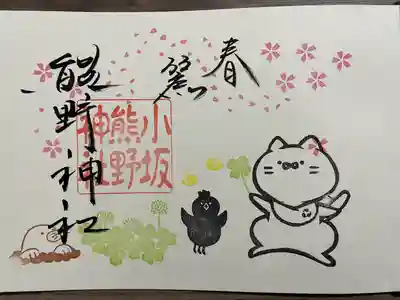 春
熊野神社
小坂
熊野
神社